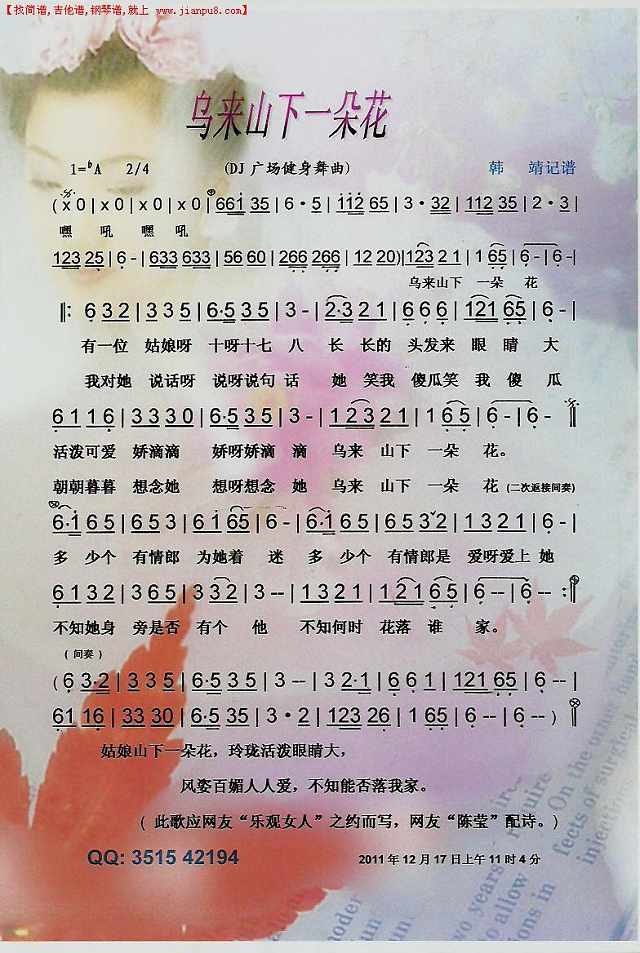 【找简谱,吉他谱,钢琴谱,就上 www.jianpu8.com】
乌来山下一朵花
1=♭A 2/4 (DJ 广场健身舞曲) 韩 靖记谱
( x 0 | x 0 | x 0 | x 0 | 661 35 | 6·5 | 112 65 | 3·32 | 112 35 | 2·3 |
嘿 吼 嘿 吼
123 25 | 6 - | 633 633 | 56 60 | 266 266 | 12 20 )| 123 2 1 | 1 65 | 6 - | 6 - |
乌来山下 一朵 花
‖: 6 3 2 | 3 3 2 | 6·5 3 5 | 3 - | 2·3 2 1 | 6 6 6 | 121 65 | 6 - |
有一位 姑娘呀 十呀十七 八 长 长的 头发来 眼 睛 大
我对她 说话呀 说呀说句 话 她 笑我 傻瓜笑 我 傻 瓜
6 1 1 6 | 3 3 3 0 | 6·5 3 5 | 3 - | 1 2 3 2 1 | 1 6 5 | 6 - | 6 - ‖
活泼可爱 娇滴滴 娇呀娇滴 滴 乌来 山下 一朵 花。
朝朝暮暮 想念她 想呀想念 她 乌来 山下 一朵 花 (二次返接间奏)
6·1 6 5 | 6 5 3 | 6 1 65 | 6 - | 6·1 6 5 | 6 5 3 2 | 1 3 2 1 | 6 - |
多 少个 有情郎 为她着 迷 多 少个 有情郎是 爱呀爱上 她
6 1 2 1 | 3 6 5 | 3 3 2 | 3 - - | 1 3 2 1 | 1 2 1 6 5 | 6 - - | 6 - - :‖
不知她身 旁是否 有个 他 不知何时 花落 谁 家。
( 间奏 )
( 6 3·2 | 3 3 5 | 6·5 3 5 | 3 - - | 3 2·1 | 6 6 1 | 121 65 | 6 - - |
61 16 | 33 30 | 6·5 35 | 3·2 | 123 26 | 1 65 | 6 - - | 6 - - ) ‖
姑娘山下一朵花，玲珑活泼眼睛大，
风姿百媚人人爱，不知能否落我家。
( 此歌应网友“乐观女人”之约而写，网友“陈莹”配诗。)
QQ: 3515 42194 2011 年 12 月 17 日上午 11 时 4 分